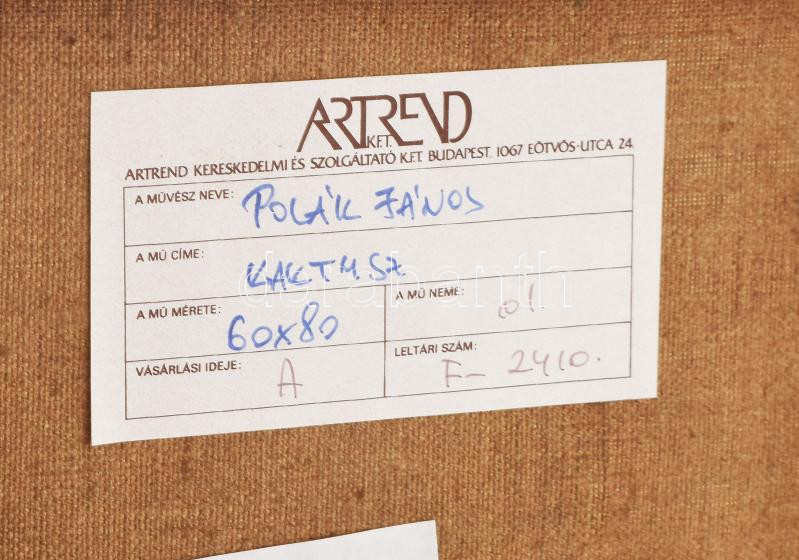 ARTREND
KFT.
ARTREND KERESKEDELMI ÉS SZOLGÁLTATÓ KFT. BUDAPEST, 1067 EÖTVÖS-UTCA 24.
A MŰVÉSZ NEVE: POLÁK JÁNOS
A MŰ CÍME: KAKTUSZ
A MŰ MÉRETE: 60X80
A MŰ NEME: ol.
VÁSÁRLÁSI IDEJE: A
LELTÁRI SZÁM: F- 2410.
darabanth